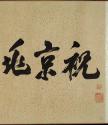 祝京兆